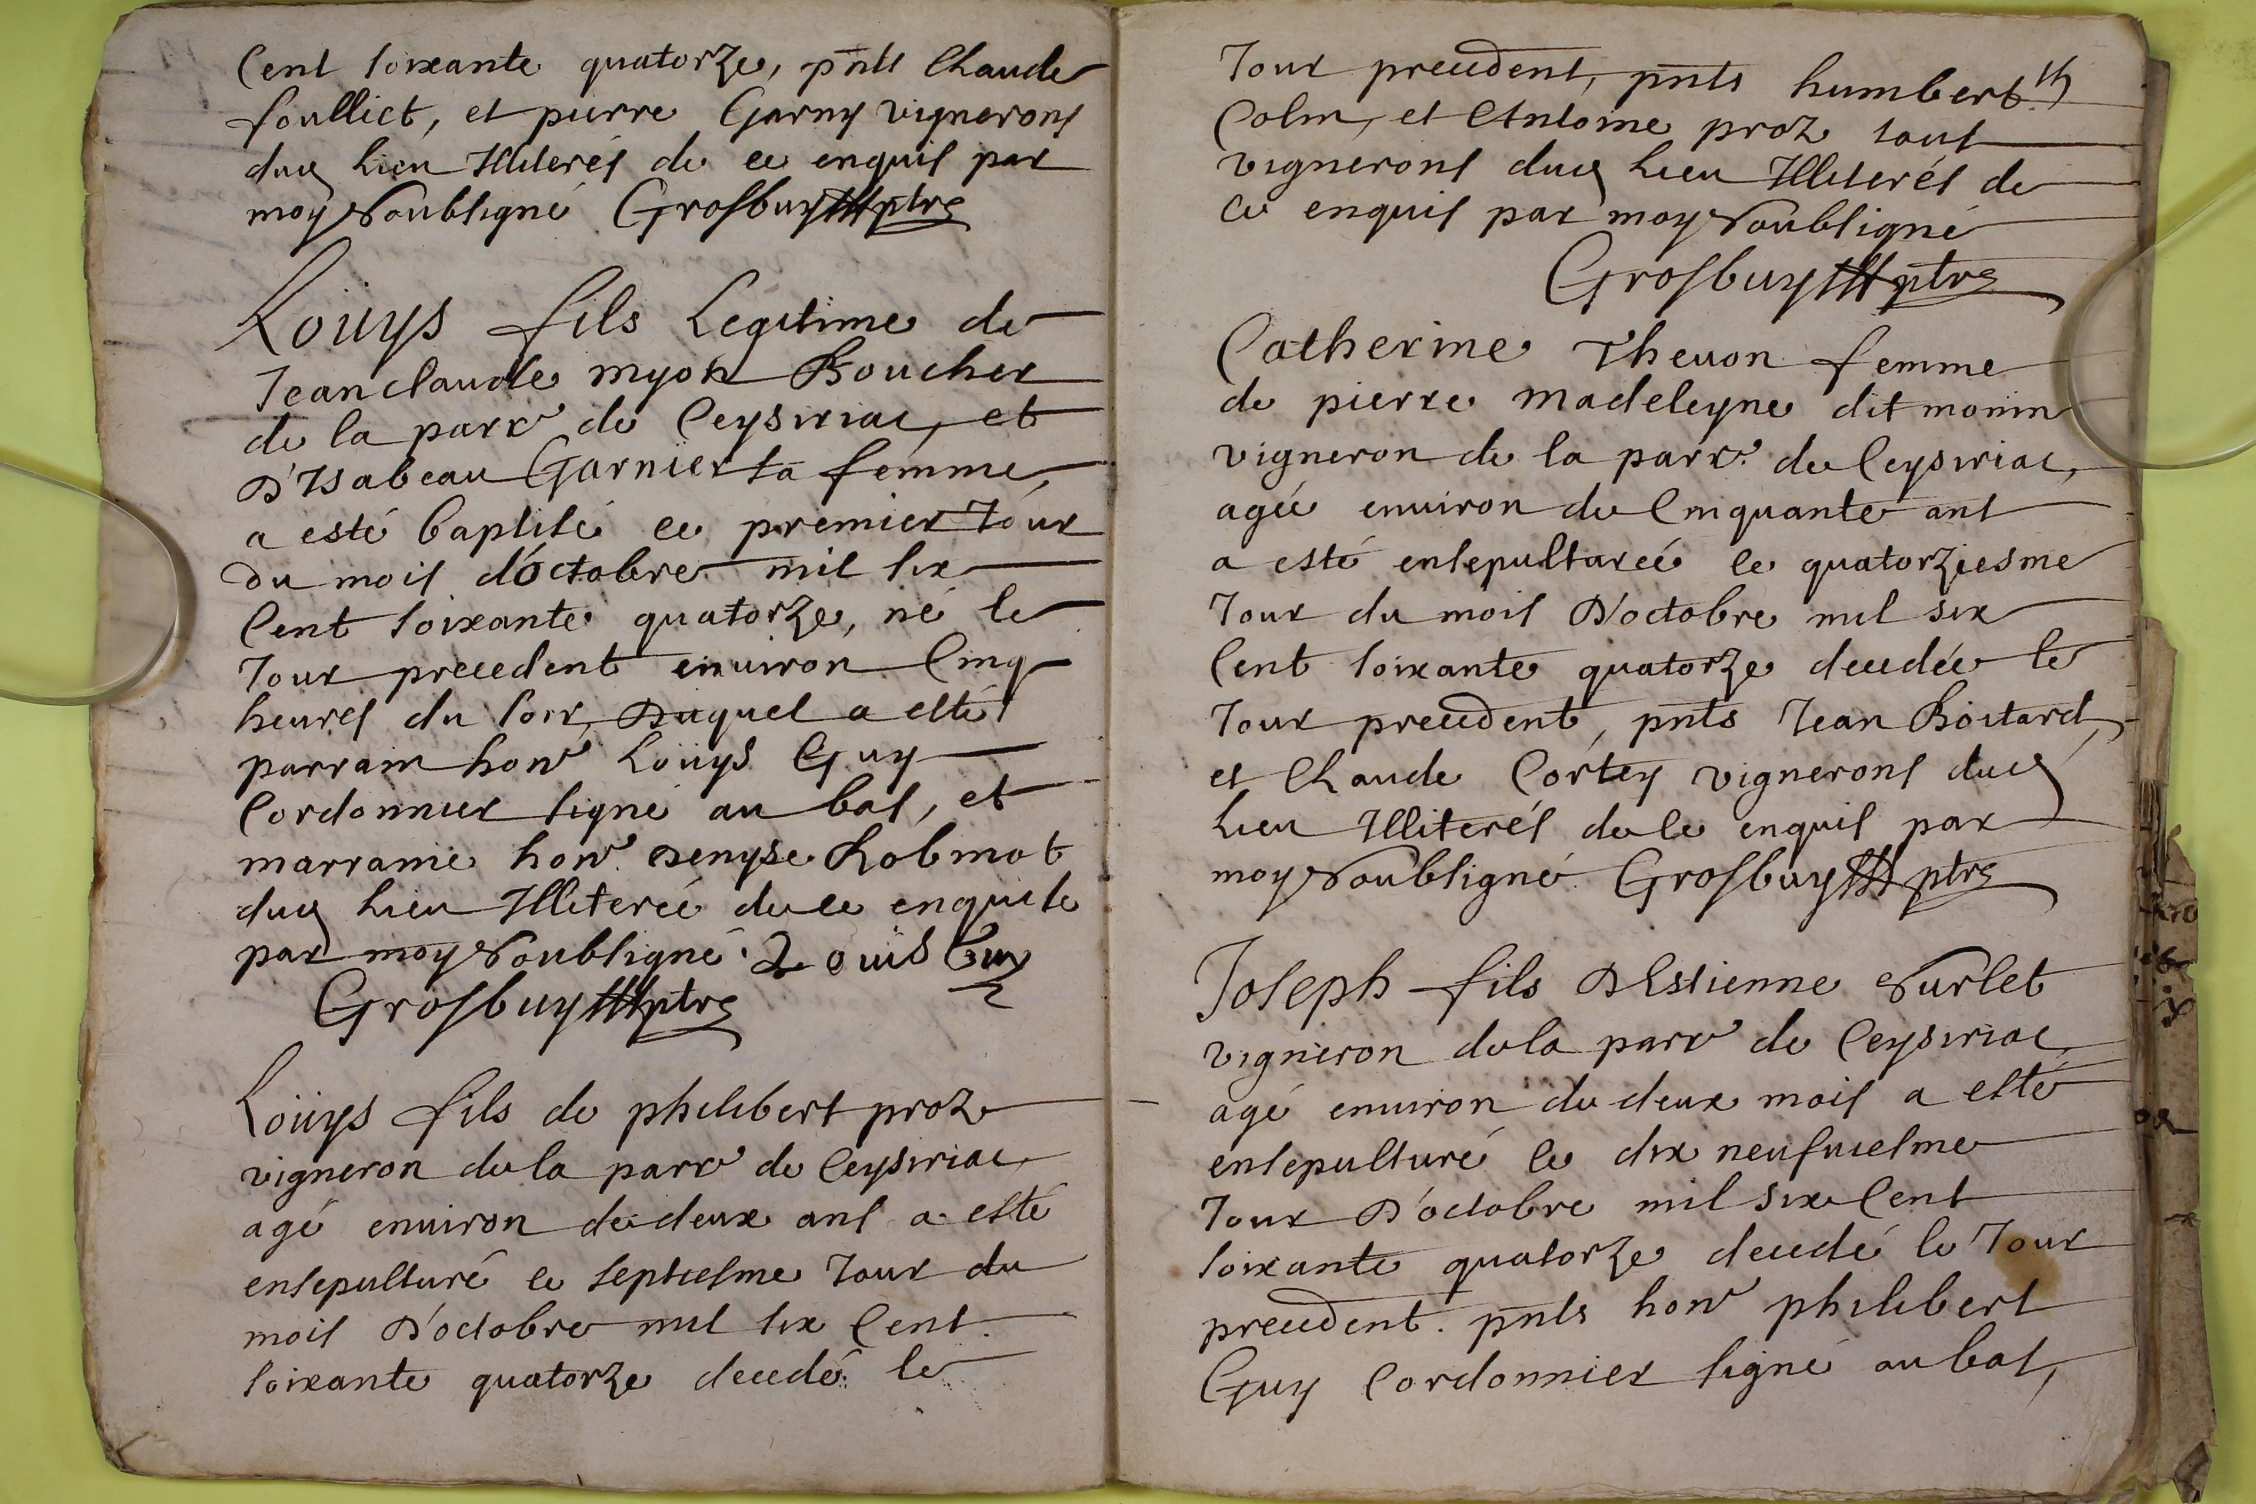 Cent soixante quatorze, pnts Claude
foulliet, et pierre Garny vignerons
dud lieu Illiterés de ce enquis par
moy soubsigné Grosbuy ptre
Loüys fils Legitime de
Jeanclaude myon Boucher
de la parr de Ceysiriac, et
D'Isabeau Garnier sa femme,
a esté baptisé le premier Jour
du mois d'octobre mil six
Cent soixante quatorze, né le
Jour precedent environ Cinq
heures du soir, Duquel a esté
parrain honr Loüys Guy
Cordonnier signé au bas, et
marraine honr Denyse Robinot
dud lieu Illiterée de ce enquise
par moy soubsigné. Louis Guy
Grosbuy ptre
Loüys fils de philibert proz
vigneron de la parr de Ceysiriac
agé environ de deux ans a esté
ensepulturé le septiesme Jour du
mois D'octobre mil six Cent
soixante quatorze decedé le
Jour precedent, pnts humbert
Colin, et Antoine proz tout
vignerons dud lieu Illiterés de
ce enquis par moy soubsigné
Grosbuy ptre
Catherine Theuon femme
de pierre madeleyne dit monin
vigneron de la parr. de Ceysiriac,
agée environ de Cinquante ans
a esté ensepulturée le quatorziesme
Jour du mois D'octobre mil six
Cent soixante quatorze decedée le
Jour precedent, pnts Jean Boitard,
et Claude Cortey vignerons dud
lieu Illiterés de ce enquis par
moy soubsigné Grosbuy ptre
Joseph fils D'Estienne surlet
vigneron de la parr de Ceysiriac
agé environ de deux mois a esté
ensepulturé le dix neufuiesme
Jour D'octobre mil six Cent
soixante quatorze decedé le Jour
precedent. pnts honr philibert
Guy Cordonnier signé au bas,